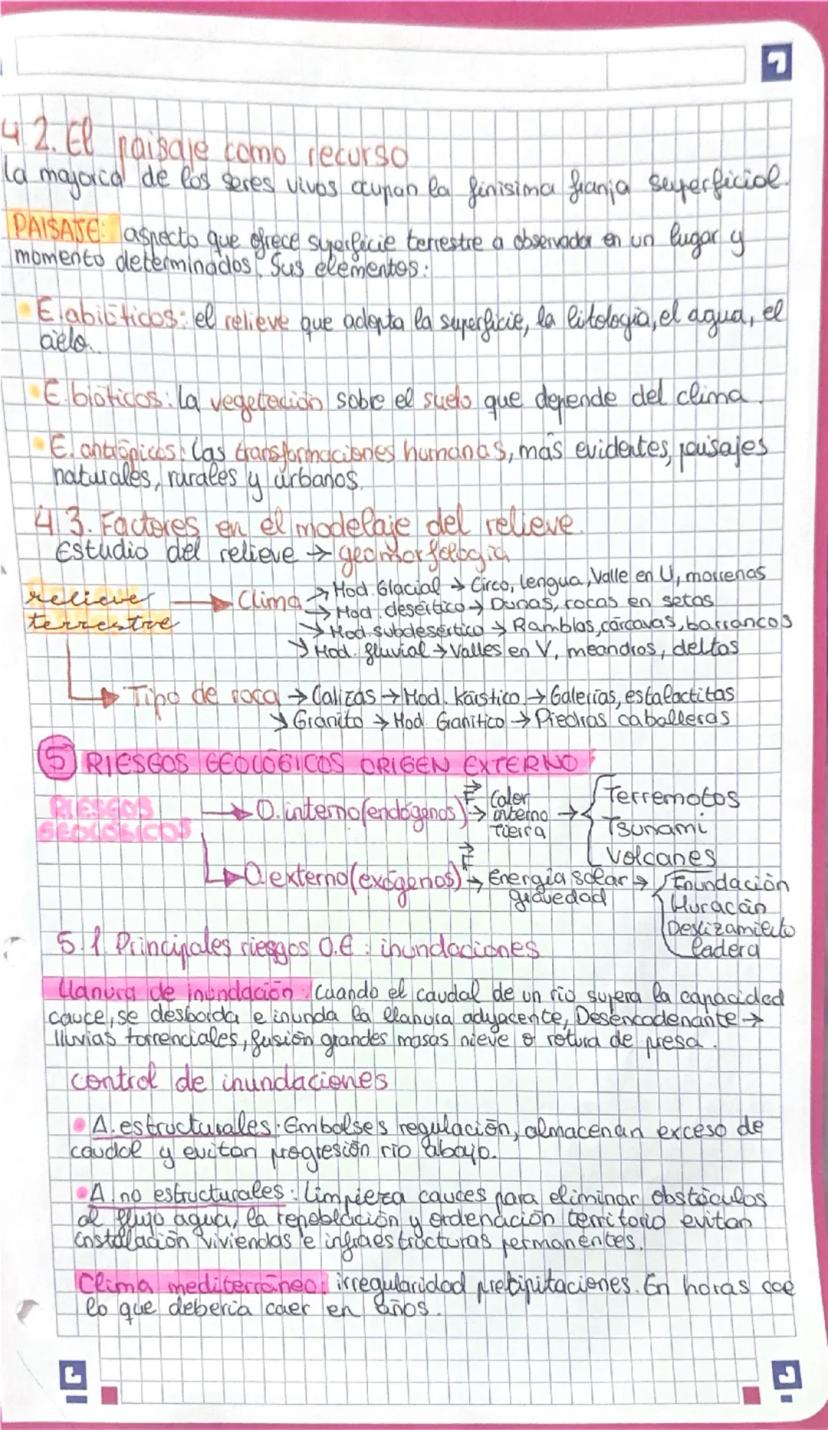 4.2. El paisaje como recurso
La mayoría de los seres vivos ocupan la finísima franja superficial.
PAISAJE: aspecto que ofrece superficie terrestre a observador en un lugar y
momento determinados. Sus elementos:
E. abióticos: el relieve que adopta la superficie, la litología, el agua, el
cielo..
E. bióticos: la vegetación sobre el suelo que depende del clima.
E. antrópicos: las transformaciones humanas, más evidentes, paisajes
naturales, rurales y urbanos.
4.3. Factores en el modelaje del relieve.
Estudio del relieve → geomorfología
relieve terrestre → Clima → Mod. Glacial → Circo, lengua, Valle en U, morrenas
→ Mod. desértico → Dunas, rocas en setas
→ Mod. subdesértico → Ramblas, cárcavas, barrancos
→ Mod. fluvial → Valles en V, meandros, deltas
→ Tipo de roca → Calizas → Mod. Kárstico → Galerías, estalactitas
→ Granito → Mod. Granítico → Piedras caballeras
5 RIESGOS GEOLÓGICOS ORIGEN EXTERNO
RIESGOS GEOLÓGICOS → O. interno (endógenos) E → Calor interno tierra → Terremotos
Tsunami
Volcanes
→ O. externo (exógenos) E → Energía solar gravedad → Inundación
Huracán
Deslizamiento
ladera
5.1 Principales riesgos O.E: inundaciones
Llanura de inundación: Cuando el caudal de un río supera la capacidad
cauce, se desborda e inunda la llanura adyacente, Desencadenante →
lluvias torrenciales, fusión grandes masas nieve o rotura de presa.
control de inundaciones
A. estructurales: Embalses regulación, almacenan exceso de
caudal y evitan progresión río abajo.
A. no estructurales: Limpieza cauces para eliminar obstáculos
al flujo agua, la repoblación y ordenación territorio evitan
instalación viviendas e infraestructuras permanentes.
Clima mediterráneo: irregularidad precipitaciones. En horas cae
lo que debería caer en años.